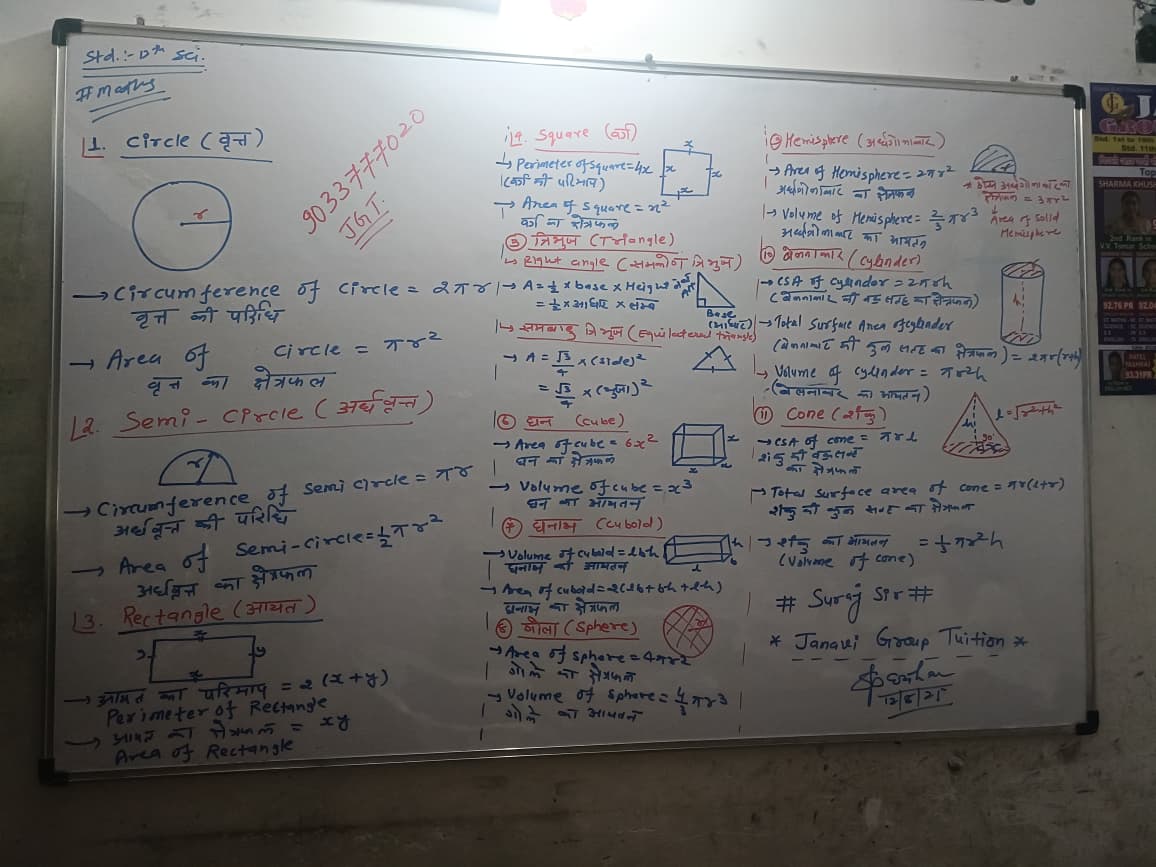 Std.:- 12th Sci.
# maths
1. Circle (वृत्त)
r
9033777020
JGI.
→ Circumference of circle = 2πr
वृत्त की परिधि
→ Area of circle = πr²
वृत्त का क्षेत्रफल
2. Semi-Circle (अर्धवृत्त)
r
→ Circumference of semi circle = πr
अर्धवृत्त की परिधि
→ Area of semi-circle = 1/2 πr²
अर्धवृत्त का क्षेत्रफल
3. Rectangle (आयत)
x
y
y
x
→ आयत का परिमाप = 2(x+y)
Perimeter of Rectangle
→ आयत का क्षेत्रफल = xy
Area of Rectangle
4. Square (वर्ग)
→ Perimeter of square = 4x
(वर्ग की परिमाप)
x
x
x
x
→ Area of square = x²
वर्ग का क्षेत्रफल
5 त्रिभुज (Triangle)
→ Right angle (समकोण त्रिभुज)
→ A = 1/2 × base × Height
= 1/2 × आधार × लम्ब
Base
(आधार)
→ समबाहु त्रिभुज (Equilateral triangle)
→ A = √3/4 × (side)²
= √3/4 × (भुजा)²
6 घन (cube)
→ Area of cube = 6x²
घन का क्षेत्रफल
x
x
x
→ Volume of cube = x³
घन का आयतन
7 घनाभ (cuboid)
→ Volume of cuboid = lbh
घनाभ का आयतन
h
l
b
→ Area of cuboid = 2(lb+bh+lh)
घनाभ का क्षेत्रफल
8 गोला (Sphere)
r
→ Area of sphere = 4πr²
गोले का क्षेत्रफल
→ Volume of sphere = 4/3 πr³
गोले का आयतन
9 Hemisphere (अर्धगोलाकार)
→ Area of Hemisphere = 2πr²
अर्धगोलाकार का क्षेत्रफल
→ Volume of Hemisphere = 2/3 πr³
अर्धगोलाकार का आयतन
* ठोस अर्धगोलाकार का
क्षेत्रफल = 3πr²
Area of Solid
Hemisphere
10 बेलनाकार (cylinder)
→ CSA of cylinder = 2πrh
(बेलनाकार की वक्र सतह का क्षेत्रफल)
h
→ Total Surface Area of cylinder
(बेलनाकार की कुल सतह का क्षेत्रफल) = 2πr(r+h)
→ Volume of cylinder = πr²h
(बेलनाकार का आयतन)
11 Cone (शंकु)
l = √r²+h²
h
90°
→ CSA of cone = πrl
शंकु की वक्र सतह
का क्षेत्रफल
→ Total surface area of cone = πr(l+r)
शंकु की कुल सतह का क्षेत्रफल
→ शंकु का आयतन = 1/3 πr²h
(Volume of cone)
# Suraj Sir #
* Janavi Group Tuition *
12/6/21
Std. 1st to 10th
Std. 11th
Top
SHARMA KHUS
2nd Rank in
92.76 PR
PATEL
93.31PR